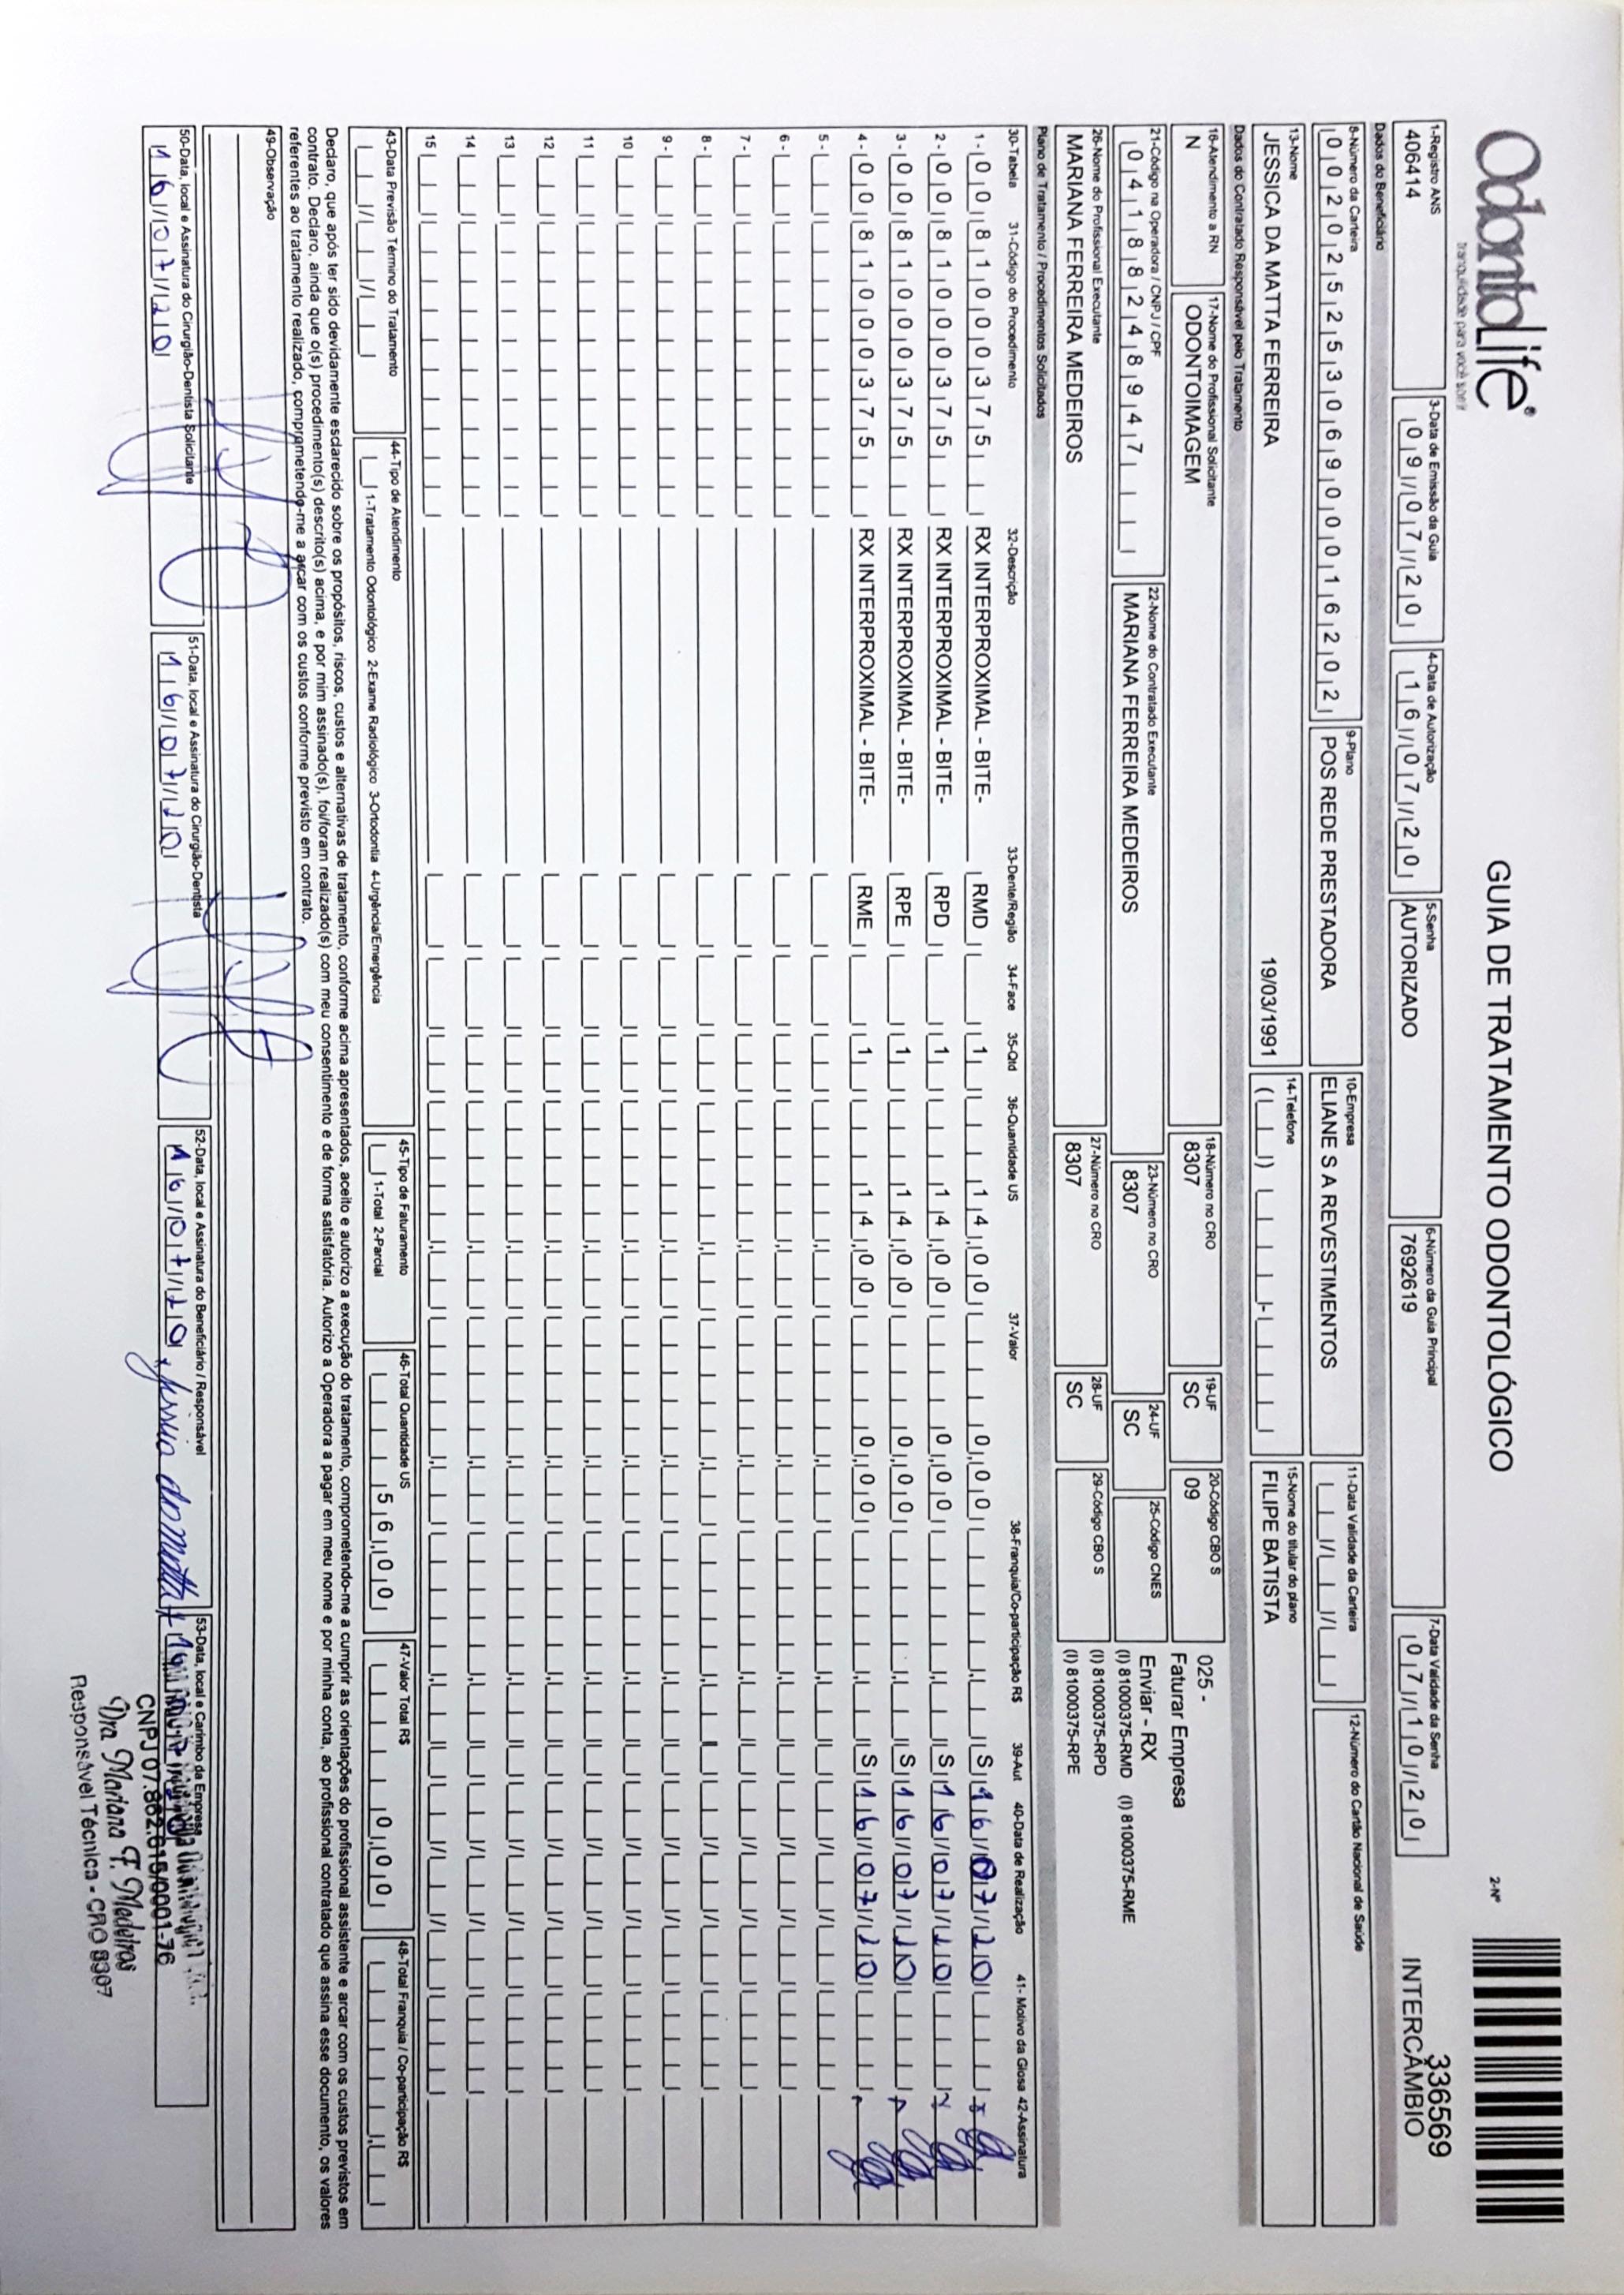 OdontoLife®
tranquilidade para você sorrir
GUIA DE TRATAMENTO ODONTOLÓGICO
2-Nº
336569
INTERCÂMBIO
1-Registro ANS
406414
3-Data de Emissão da Guia
09/07/20
4-Data de Autorização
16/07/20
5-Senha
AUTORIZADO
6-Número da Guia Principal
7692619
7-Data Validade da Senha
07/10/20
Dados do Beneficiário
8-Número da Carteira
00202525306900016202
9-Plano
POS REDE PRESTADORA
10-Empresa
ELIANE S A REVESTIMENTOS
11-Data Validade da Carteira
12-Número do Cartão Nacional de Saúde
13-Nome
JESSICA DA MATTA FERREIRA
19/03/1991
14-Telefone
15-Nome do titular do plano
FILIPE BATISTA
Dados do Contratado Responsável pelo Tratamento
16-Atendimento a RN
N
17-Nome do Profissional Solicitante
ODONTOIMAGEM
18-Número no CRO
8307
19-UF
SC
20-Código CBO S
09
025 -
Faturar Empresa
21-Código na Operadora / CNPJ / CPF
04188248947
22-Nome do Contratado Executante
MARIANA FERREIRA MEDEIROS
23-Número no CRO
8307
24-UF
SC
25-Código CNES
Enviar - RX
(I) 81000375-RMD (I) 81000375-RME
(I) 81000375-RPD
(I) 81000375-RPE
26-Nome do Profissional Executante
MARIANA FERREIRA MEDEIROS
27-Número no CRO
8307
28-UF
SC
29-Código CBO S
Plano de Tratamento / Procedimentos Solicitados
30-Tabela 31-Código do Procedimento 32-Descrição 33-Dente/Região 34-Face 35-Qtd 36-Quantidade US 37-Valor 38-Franquia/Co-participação R$ 39-Aut 40-Data de Realização 41- Motivo da Glosa 42-Assinatura
1- 00 81000375 RX INTERPROXIMAL - BITE- RMD 1 14,00 0,00 S 16/07/20
2- 00 81000375 RX INTERPROXIMAL - BITE- RPD 1 14,00 0,00 S 16/07/20
3- 00 81000375 RX INTERPROXIMAL - BITE- RPE 1 14,00 0,00 S 16/07/20
4- 00 81000375 RX INTERPROXIMAL - BITE- RME 1 14,00 0,00 S 16/07/20
5-
6-
7-
8-
9-
10
11
12
13
14
15
43-Data Previsão Término do Tratamento
44-Tipo de Atendimento
1-Tratamento Odontológico 2-Exame Radiológico 3-Ortodontia 4-Urgência/Emergência
45-Tipo de Faturamento
1-Total 2-Parcial
46-Total Quantidade US
56,00
47-Valor Total R$
0,00
48-Total Franquia / Co-participação R$
Declaro, que após ter sido devidamente esclarecido sobre os propósitos, riscos, custos e alternativas de tratamento, conforme acima apresentados, aceito e autorizo a execução do tratamento, comprometendo-me a cumprir as orientações do profissional assistente e arcar com os custos previstos em
contrato. Declaro, ainda que o(s) procedimento(s) descrito(s) acima, e por mim assinado(s), foi/foram realizado(s) com meu consentimento e de forma satisfatória. Autorizo a Operadora a pagar em meu nome e por minha conta, ao profissional contratado que assina esse documento, os valores
referentes ao tratamento realizado, comprometendo-me a arcar com os custos conforme previsto em contrato.
49-Observação
50-Data, local e Assinatura do Cirurgião-Dentista Solicitante
16/07/20
51-Data, local e Assinatura do Cirurgião-Dentista
16/07/20
52-Data, local e Assinatura do Beneficiário / Responsável
16/07/20
53-Data, local e Carimbo da Empresa
CNPJ 07.862.615/0001-76
Dra Mariana F. Medeiros
Responsável Técnica - CRO 8307